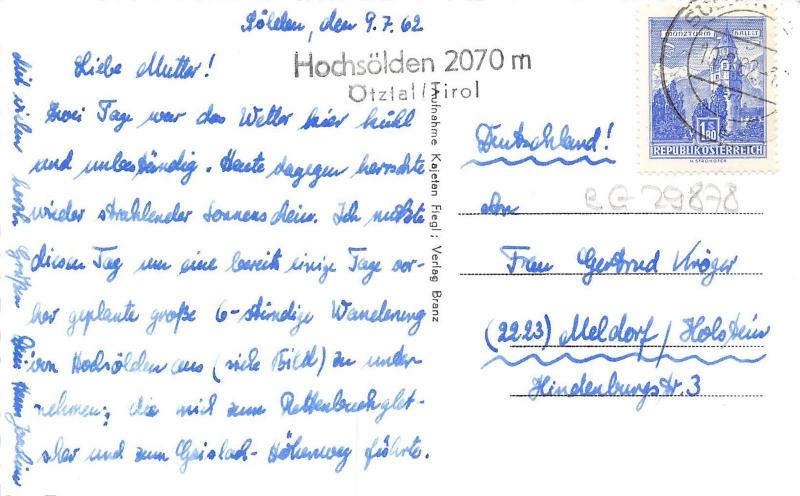 Sölden, den 9.7.62
Liebe Mutter!
Zwei Tage war das Wetter hier kühl
und unbeständig. Heute dagegen herrschte
wieder strahlender Sonnenschein. Ich nützte
diesen Tag um eine bereits einige Tage vor-
her geplante große 6-stündige Wanderung
von Hochsölden aus (siehe Bild) zu unter-
nehmen, die mich zum Rettenbachglet-
scher und zum Geislach-Höhenweg führte.
Mit vielen herzl. Grüßen Dein Hans Joachim
Hochsölden 2070 m
Ötztal/Tirol
Aufnahme Kajetan Fiegl; Verlag Branz
MÜNZTURM HALL I. T.
1.80 S
REPUBLIK ÖSTERREICH
H. STROHOFER
Deutschland!
CG 29878
An
Frau Gertrud Kröger
(2223) Meldorf/Holstein
Hindenburgstr. 3